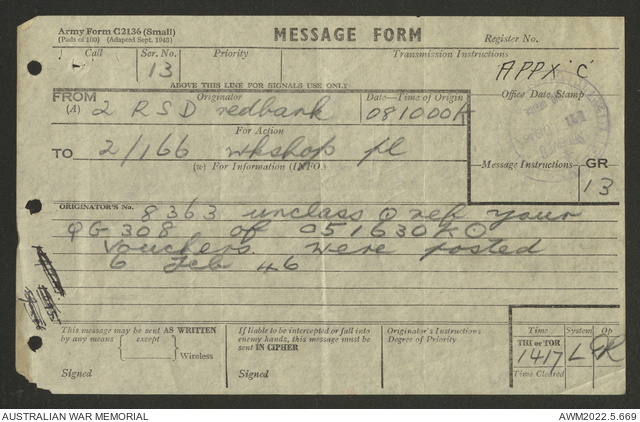 Army Form C2136 (Small)
(Pads of 100) (Adapted Sept. 1943)
MESSAGE FORM
Register No.
Call Ser. No. Priority Transmission Instructions
13
APPX 'C'
ABOVE THIS LINE FOR SIGNALS USE ONLY
FROM Originator Date—Time of Origin Office Date Stamp
(A) 2 RSD redbank 081000K
For Action
TO 2/166 wkshop pl
(w) For Information (INFO.) Message Instructions GR
13
ORIGINATOR'S No. 8363 unclass @ ref your
QG 308 of 051630K @
vouchers were posted
6 Feb 46
This message may be sent AS WRITTEN
by any means except
Wireless
Signed
If liable to be intercepted or fall into
enemy hands, this message must be
sent IN CIPHER
Signed
Originator's Instructions
Degree of Priority
Time System Op
THI or TOR
1417 L
Time Cleared
AUSTRALIAN WAR MEMORIAL AWM2022.5.669